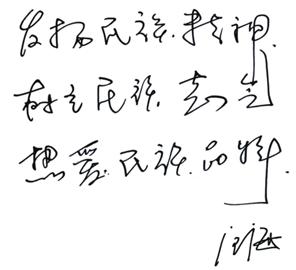 发扬民族精神
树立民族志气
热爱民族品牌
汪海